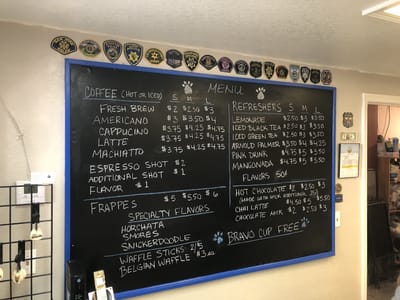 MENU
COFFEE (HOT OR ICED) S M L
FRESH BREW $2 $2.50 $3
AMERICANO $3 $3.50 $4
CAPPUCINO $3.75 $4.25 $4.75
LATTE $3.75 $4.25 $4.75
MACHIATTO $3.75 $4.25 $4.75
ESPRESSO SHOT $2
ADDITIONAL SHOT $1
FLAVOR $1
FRAPPES $5 $5.50 $6
SPECIALTY FLAVORS
HORCHATA
SMORES
SNICKERDOODLE
WAFFLE STICKS 2/5
BELGIAN WAFFLE
REFRESHERS S M L
LEMONADE $2.50 $3 $3.50
ICED BLACK TEA $2.50 $3 $3.50
ICED GREEN TEA $2.50 $3 $3.50
ARNOLD PALMER $3.50 $4 $4.50
PINK DRINK $4.75 $5 $5.50
MANGONADA $4.75 $5 $5.50
FLAVORS 50¢
HOT CHOCOLATE $2 $2.50 $3
(MADE WITH MILK ADDITIONAL
CHAI LATTE $4.50 $5 $5.50
CHOCOLATE MILK $2 $2.50 $3
BRAVO CUP FREE